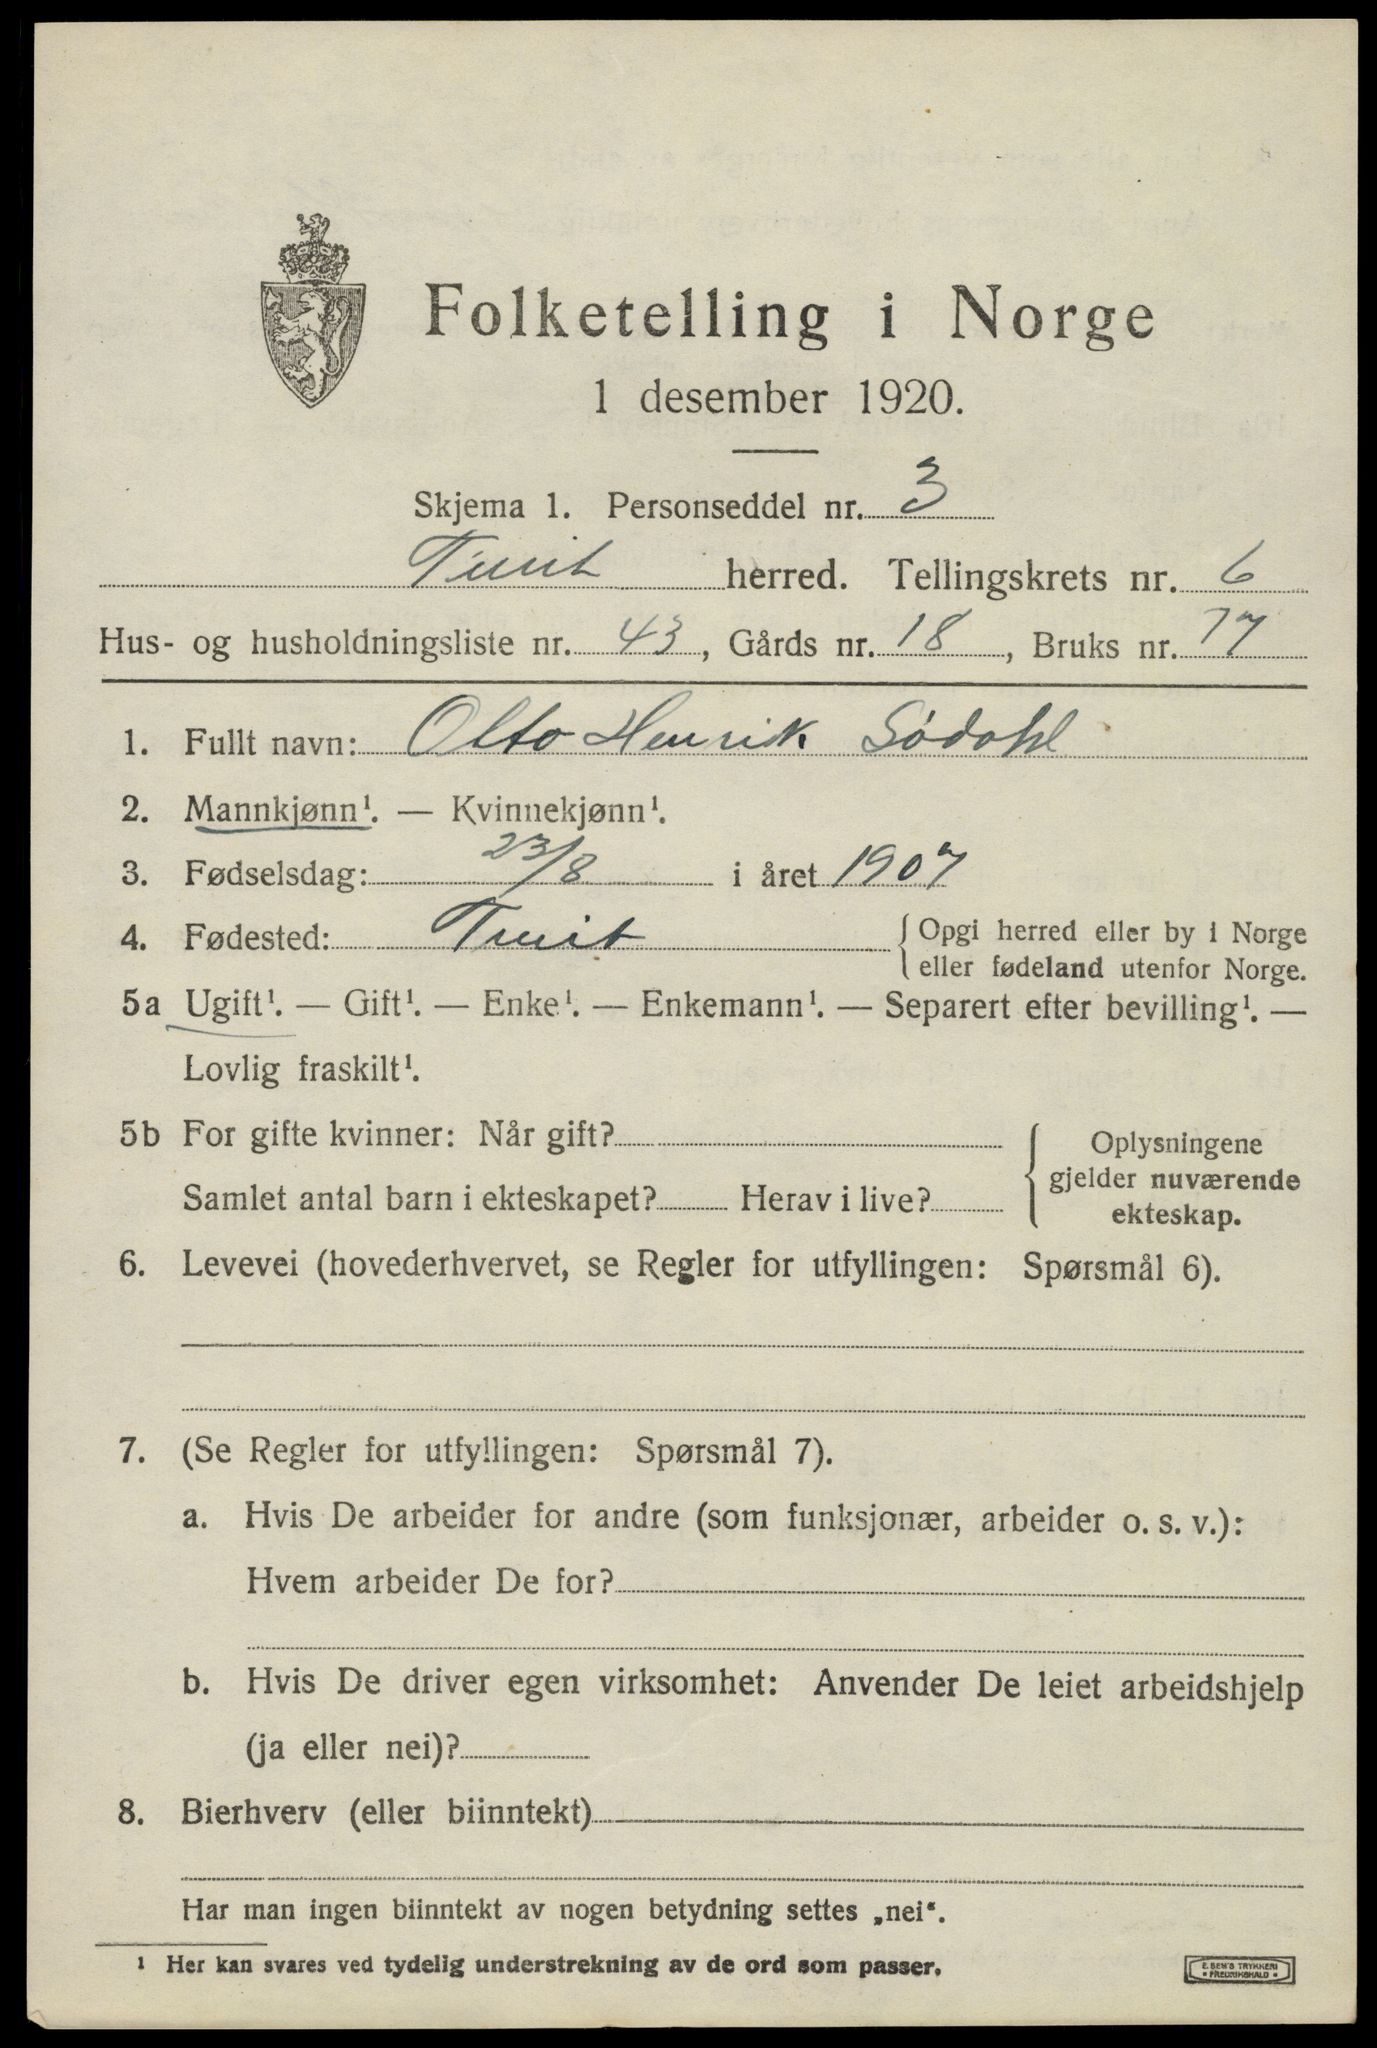 Folketelling i Norge
1 desember 1920.
Skjema 1. Personseddel nr. 3
herred. Tellingskrets nr. 6
Hus- og husholdningsliste nr. 43, Gårds nr. 18, Bruks nr. 77
1. Fullt navn: Otto Henrik Södahl
2. Mannkjønn¹. — Kvinnekjønn¹.
3. Fødselsdag: 23/8 i året 1907
4. Fødested: {Opgi herred eller by i Norge
eller fødeland utenfor Norge.
5a Ugift¹. — Gift¹. — Enke¹. — Enkemann¹. — Separert efter bevilling¹. —
Lovlig fraskilt¹.
5b For gifte kvinner: Når gift?
Samlet antal barn i ekteskapet? Herav i live?
Oplysningene
gjelder nuværende
ekteskap.
6. Levevei (hovederhvervet, se Regler for utfyllingen: Spørsmål 6).
7. (Se Regler for utfyllingen: Spørsmål 7).
a. Hvis De arbeider for andre (som funksjonær, arbeider o. s. v.):
Hvem arbeider De for?
b. Hvis De driver egen virksomhet: Anvender De leiet arbeidshjelp
(ja eller nei)?
8. Bierhverv (eller biinntekt)
Har man ingen biinntekt av nogen betydning settes „nei“.
¹ Her kan svares ved tydelig understrekning av de ord som passer.
E. SEM'S TRYKKERI
• FREDRIKSHALD •